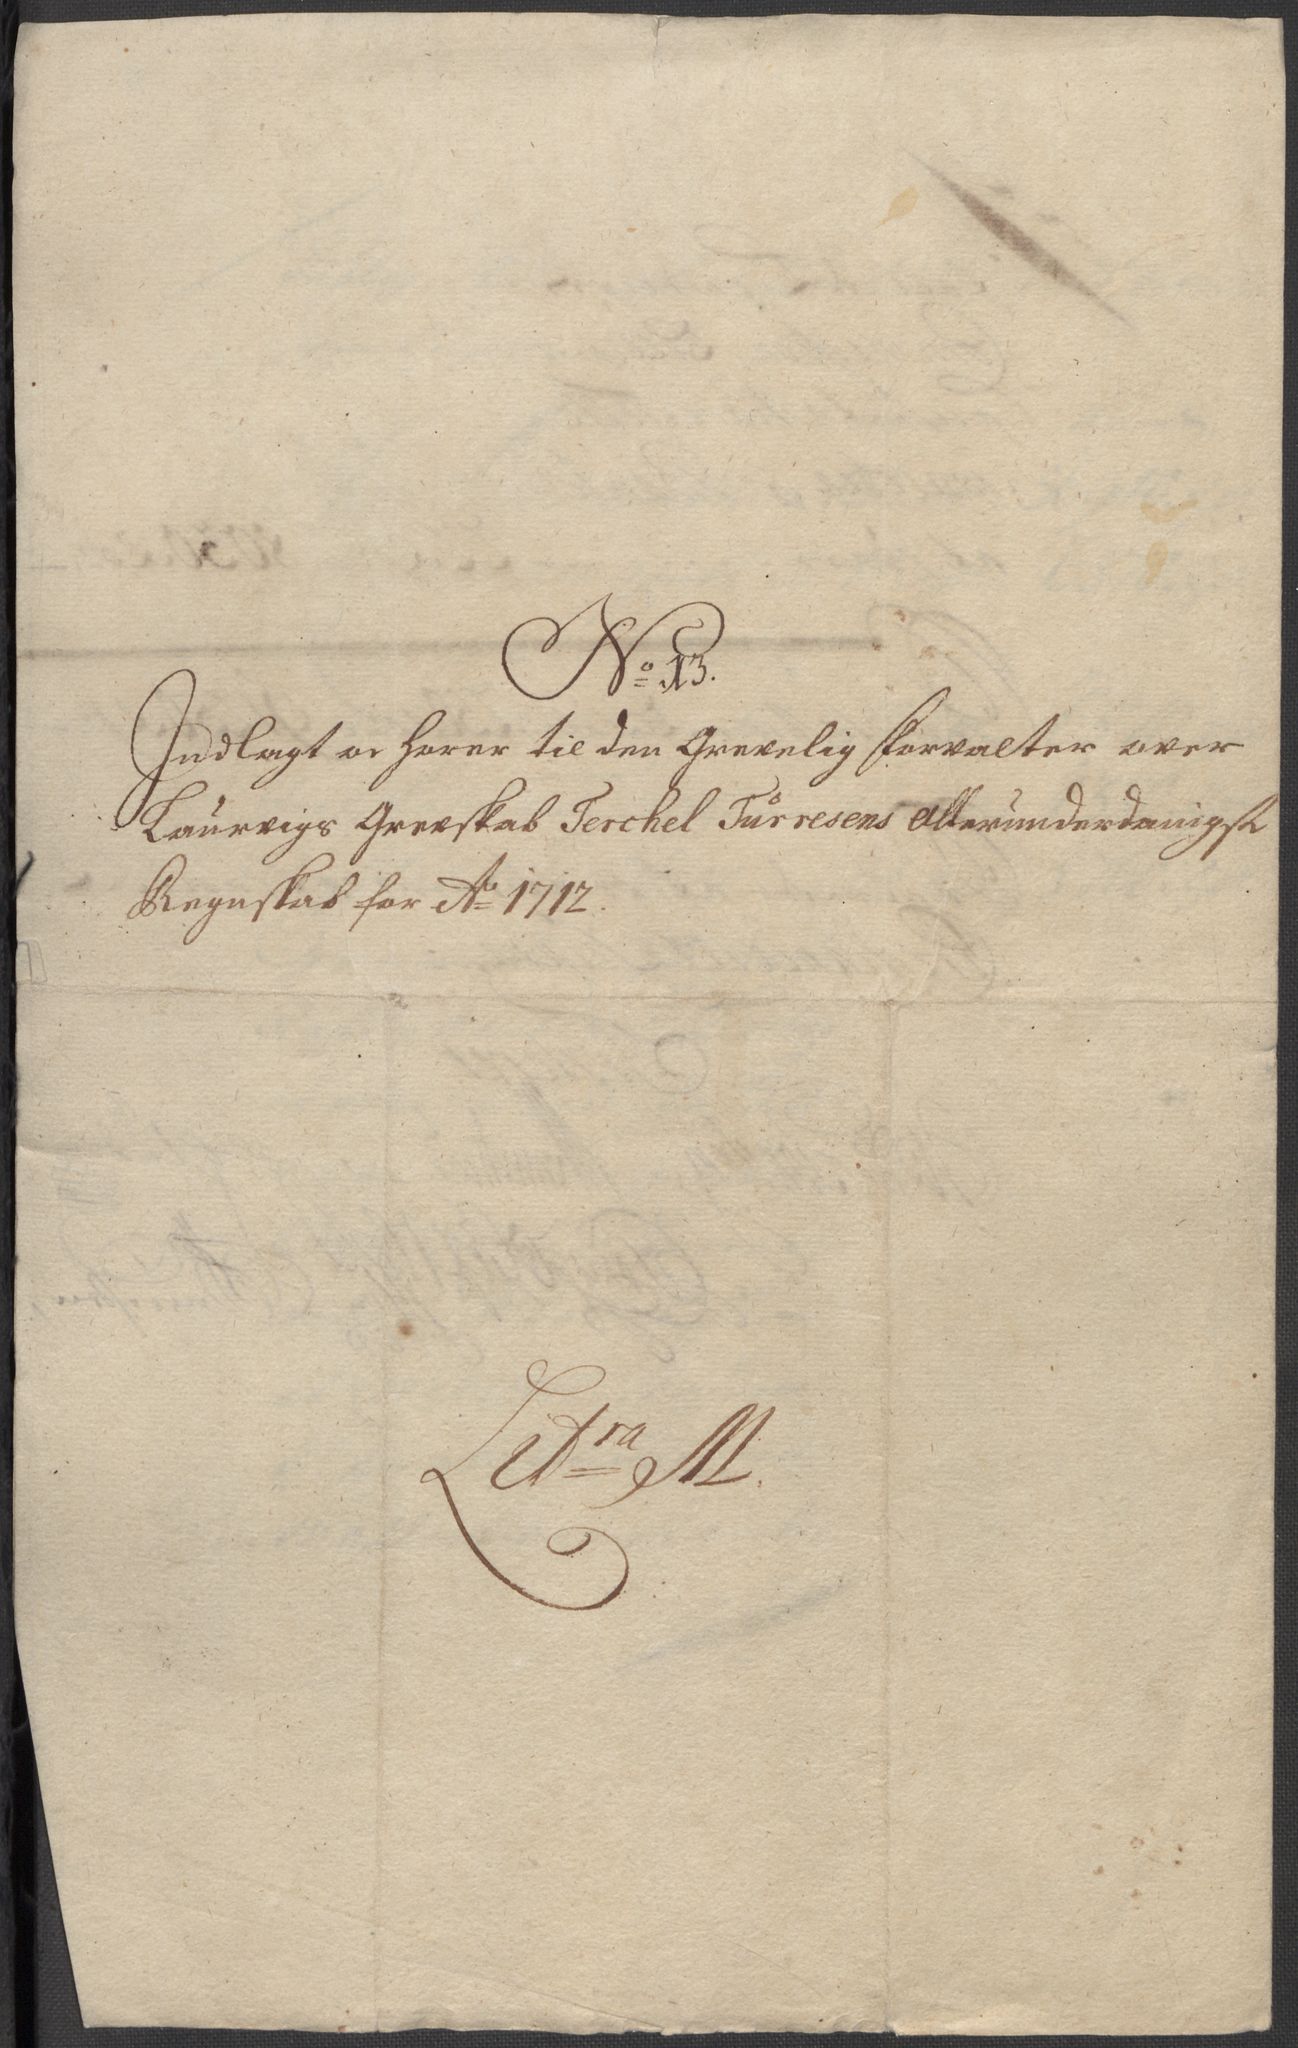 No 13.
Indlagt oc Hører til den Grevelig Forvalter over
Laurvigs Grevskab Terchel Türresens Allerunderdanigst
Regnskab for Ao 1712.
Litra M.